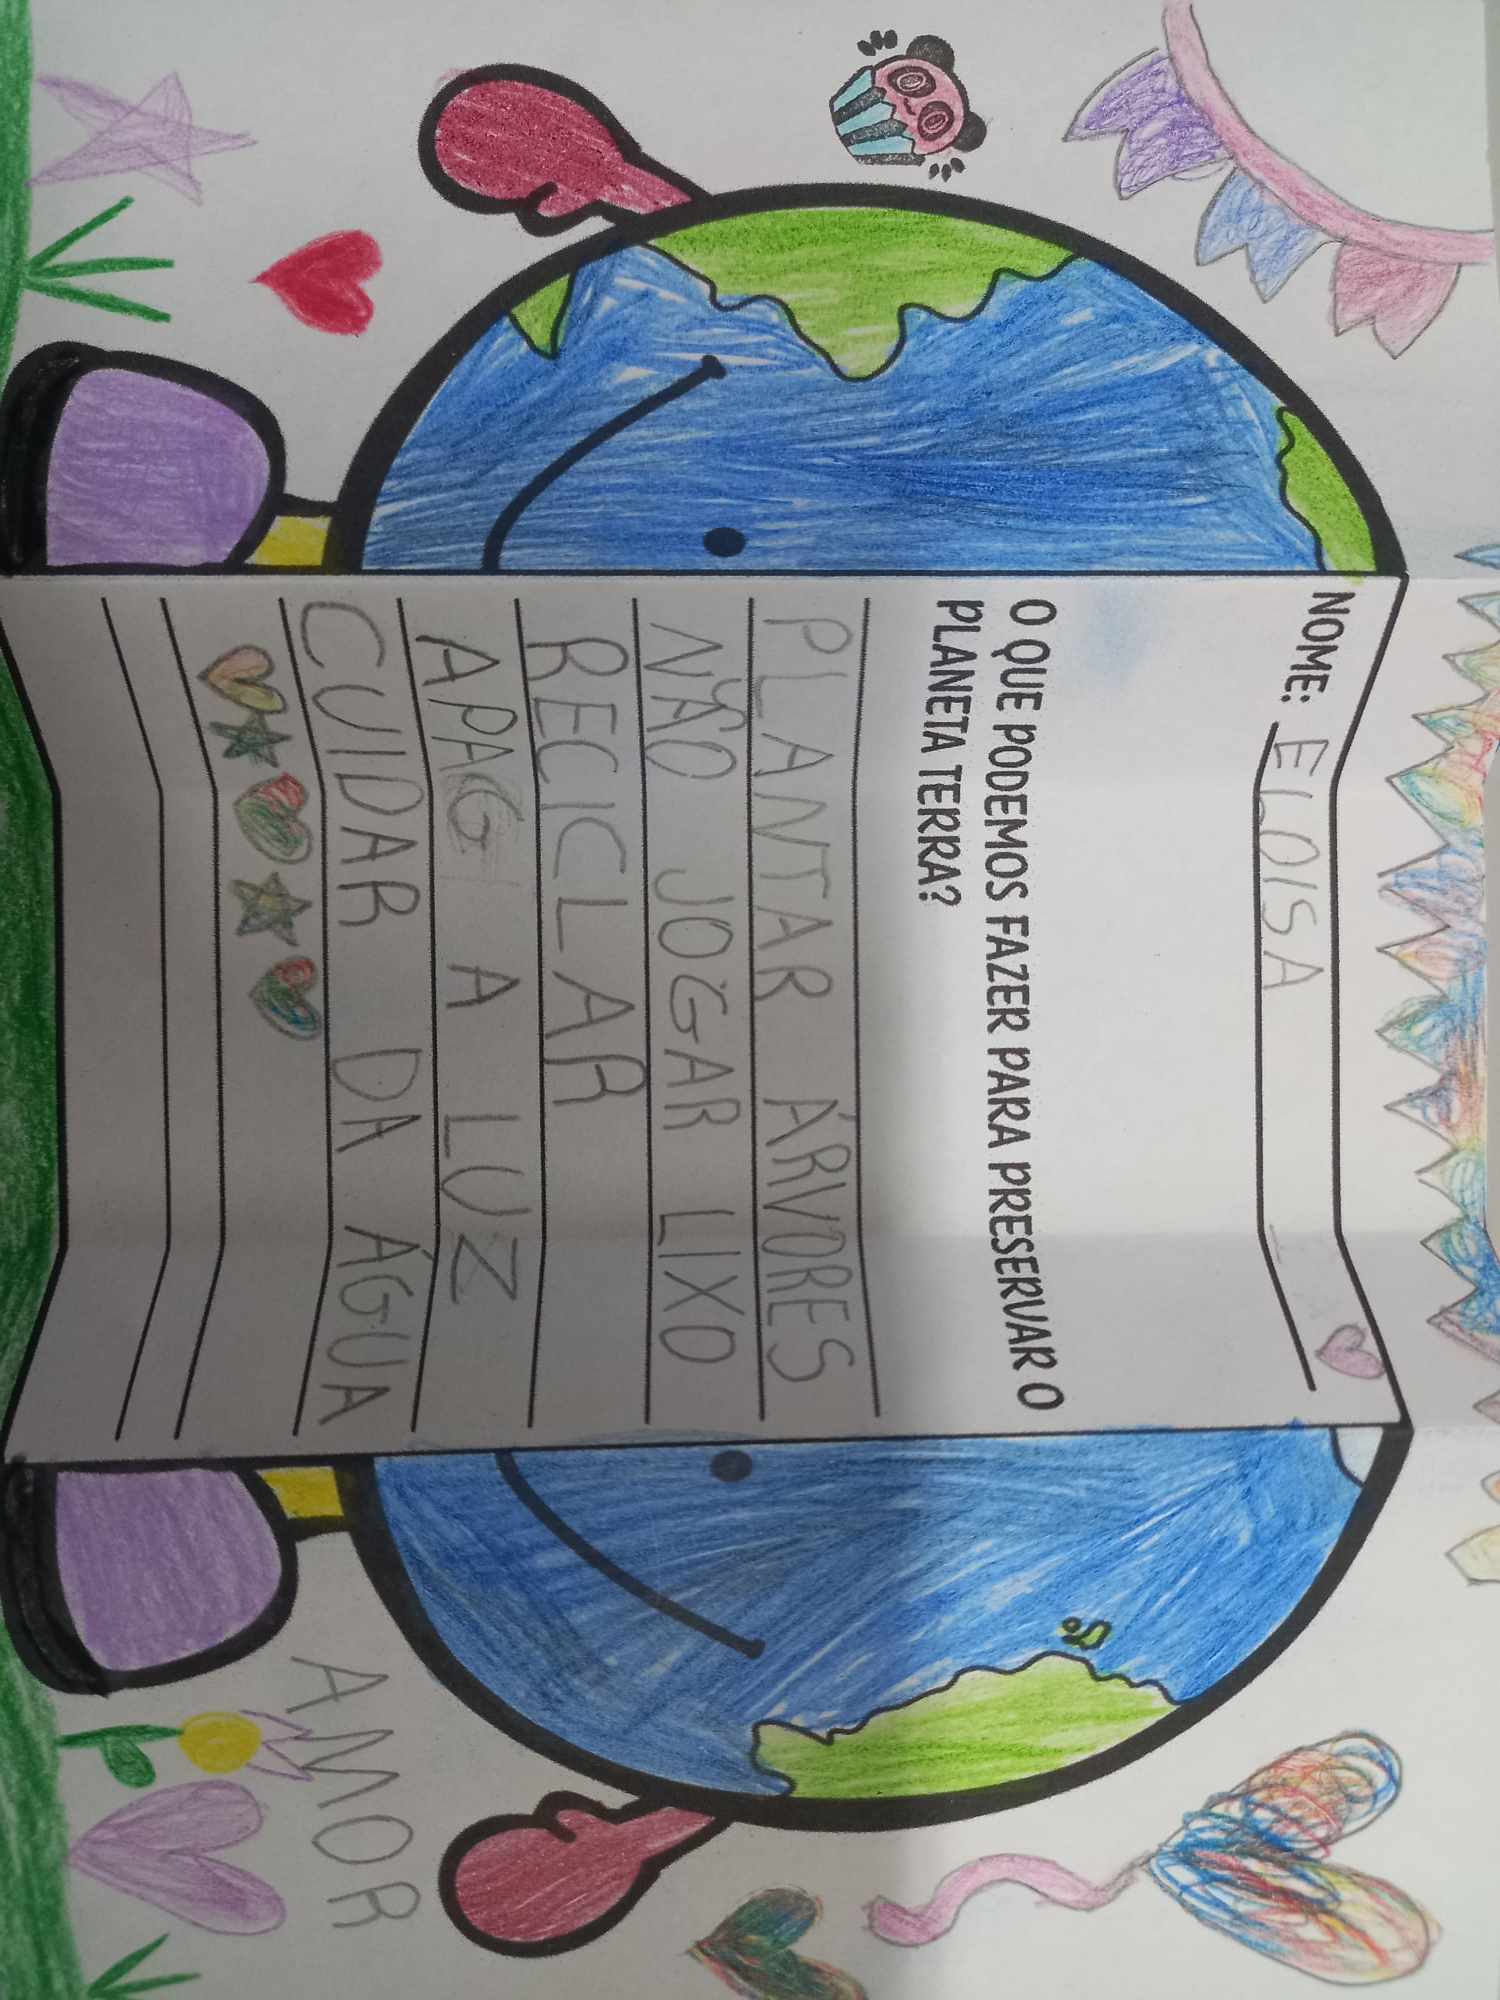 NOME: ELOISA
O QUE PODEMOS FAZER PARA PRESERVAR O
PLANETA TERRA?
PLANTAR ÁRVORES
NÃO JOGAR LIXO
RECICLAR
APAG A LUZ
CUIDAR DA ÁGUA
AMOR